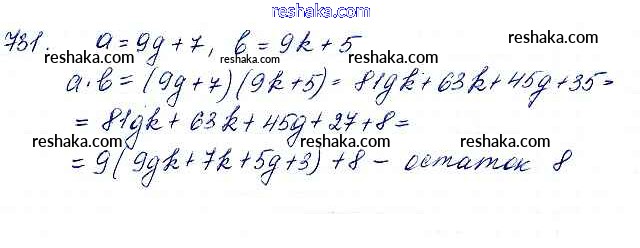 reshaka.com
731. a = 9g + 7, b = 9k + 5
reshaka.com reshaka.com
a·b = (9g + 7)(9k + 5) = 81gk + 63k + 45g + 35 =
reshaka.com
= 81gk + 63k + 45g + 27 + 8 =
reshaka.com reshaka.com
= 9(9gk + 7k + 5g + 3) + 8 - остаток 8